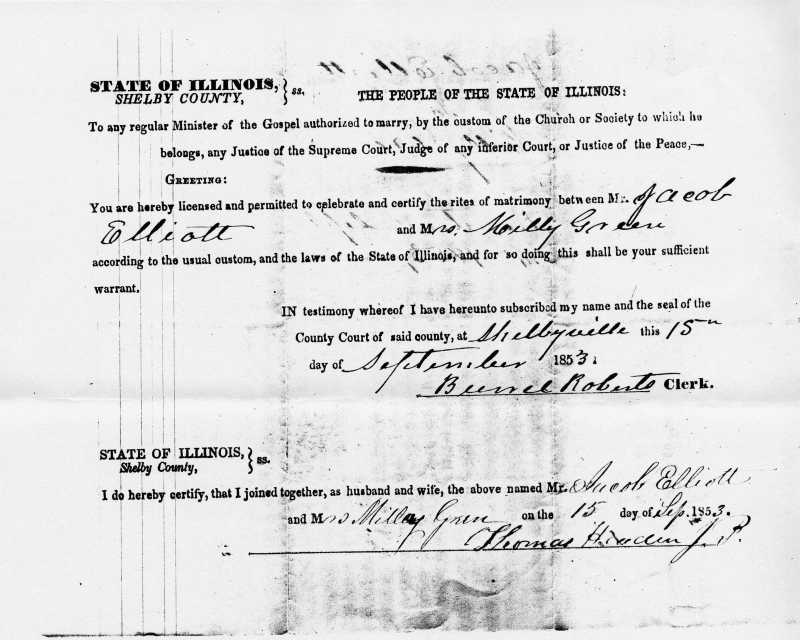 STATE OF ILLINOIS, } ss.
SHELBY COUNTY,
THE PEOPLE OF THE STATE OF ILLINOIS:
To any regular Minister of the Gospel authorized to marry, by the custom of the Church or Society to which he
belongs, any Justice of the Supreme Court, Judge of any inferior Court, or Justice of the Peace,—
GREETING:
You are hereby licensed and permitted to celebrate and certify the rites of matrimony between Mr. Jacob
Elliott and Mrs. Milly Green
according to the usual custom, and the laws of the State of Illinois, and for so doing this shall be your sufficient
warrant.
IN testimony whereof I have hereunto subscribed my name and the seal of the
County Court of said county, at Shelbyville this 15th
day of September 1853.
Burrel Roberts Clerk.
STATE OF ILLINOIS, } ss.
Shelby County,
I do hereby certify, that I joined together, as husband and wife, the above named Mr. Jacob Elliott
and Mrs Milley Green on the 15 day of Sep. 1853.
Thomas J. P.